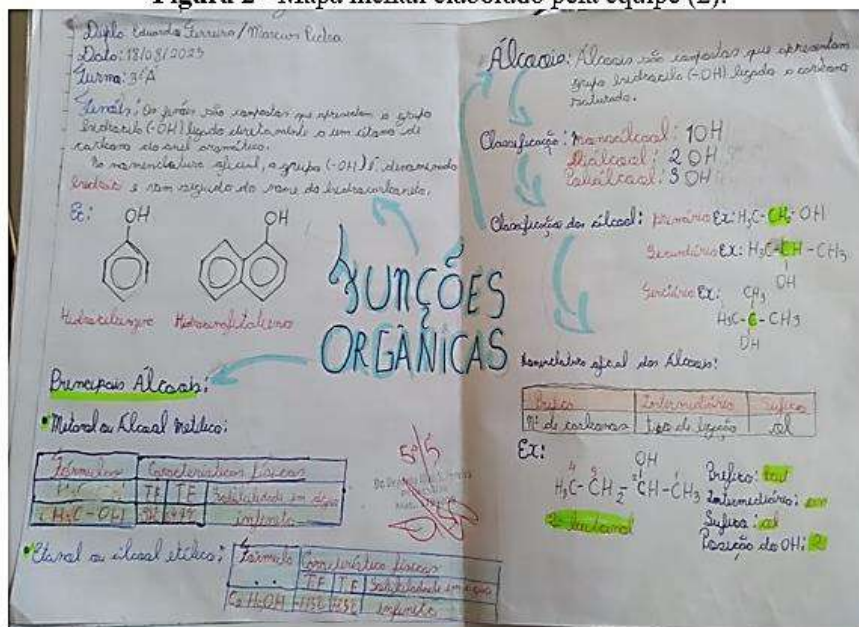 Figura 2 - Mapa mental elaborado pela equipe (2).
Dupla Eduarda Ferreira / Marcus
Data: 18/08/2023
Turma: 3ºA
Fenóis: Os fenóis são compostos que apresentam o grupo
hidroxila (-OH) ligado diretamente a um átomo de
carbono do anel aromático.
Na nomenclatura oficial, o grupo (-OH) é denominado
hidroxi e vem seguido do nome do hidrocarboneto.
Ex:
OH
OH
Hidroxibenzeno
Hidroxinaftaleno
FUNÇÕES
ORGÂNICAS
Principais Álcoois:
• Metanol ou Álcool Metílico:
Fórmula
Características físicas
T.F T.E Solubilidade em água
H3C-OH
infinita
• Etanol ou álcool etílico:
Fórmula Características físicas
T.F T.E Solubilidade em água
C2H5OH
infinita
5,0/5
Álcoois: Álcoois são compostos que apresentam
grupo hidroxila (-OH) ligado a carbono
saturado.
Classificação: Monoálcool: 1OH
Diálcool: 2OH
Poliálcool: 3OH
Classificação dos álcool: primário Ex: H3C-CH2-OH
Secundário Ex: H3C-CH-CH3
OH
Terciário Ex: CH3
H3C-C-CH3
OH
Nomenclatura oficial dos Álcoois:
Prefixo Intermediário Sufixo
Nº de carbonos tipo de ligação ol
Ex:
OH
H3C-CH2-CH-CH3
2-butanol
Prefixo: but
Intermediário: an
Sufixo: ol
Posição do OH: 2